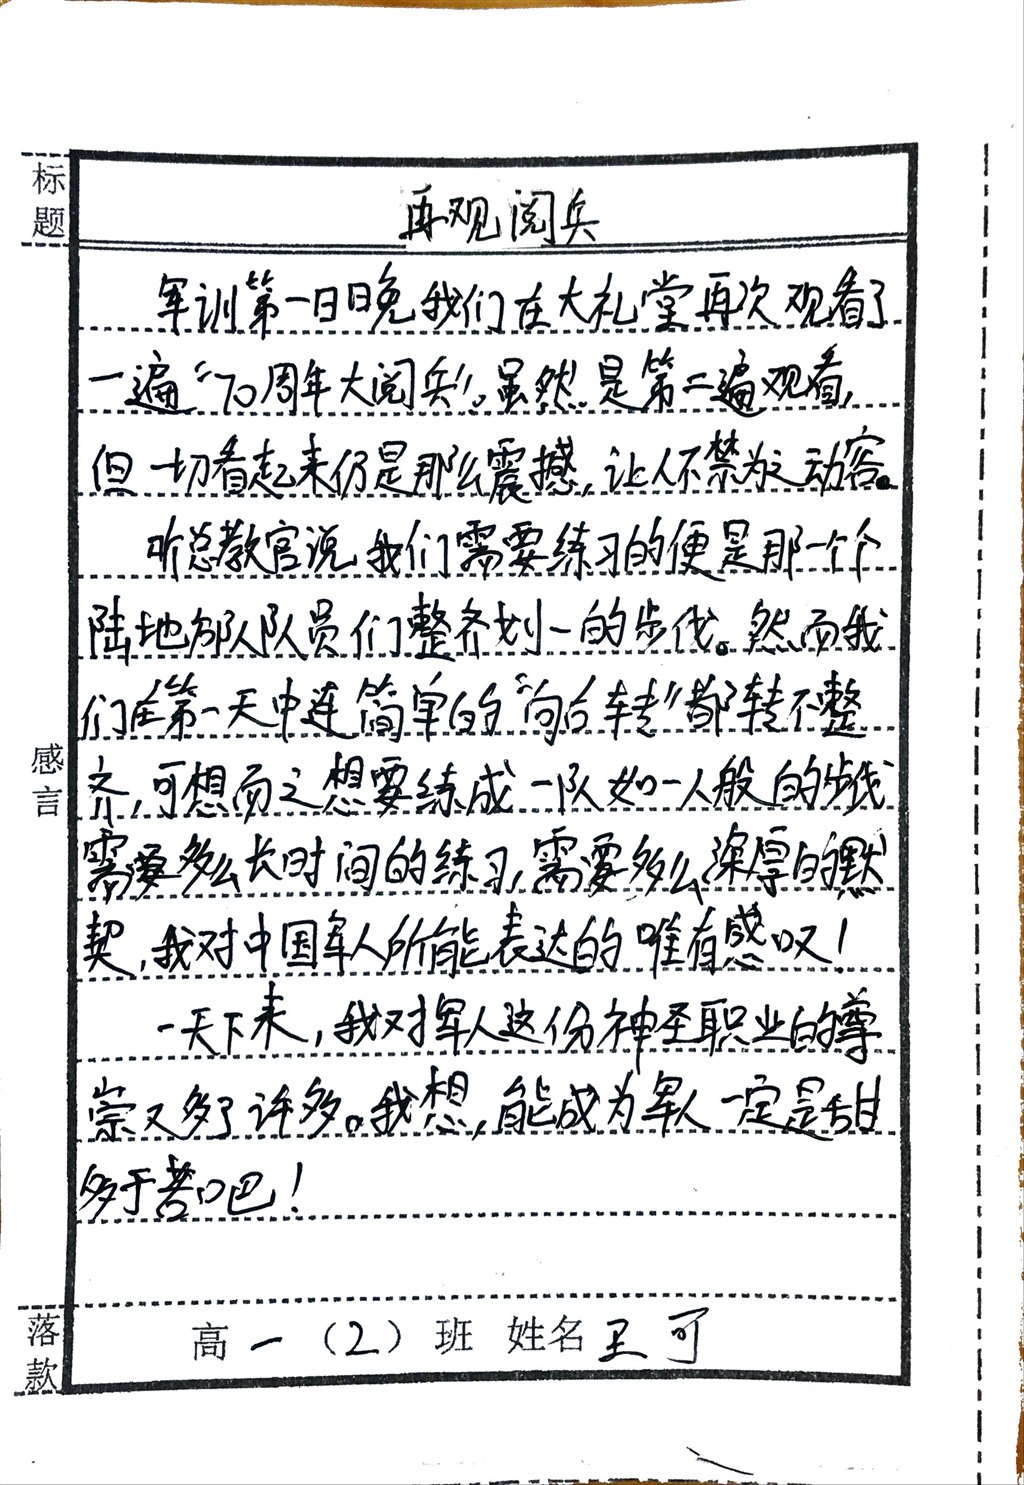 标题
再观阅兵
军训第一日晚我们在大礼堂再次观看了
一遍“70周年大阅兵”。虽然是第二遍观看,
但一切看起来仍是那么震撼,让人不禁为之动容。
听总教官说我们需要练习的便是那一个个
陆地部队队员们整齐划一的步伐。然而我
们在第一天中连简单的“向后转”都转不整
齐,可想而之想要练成一队如一人般的步伐
需要多么长时间的练习,需要多么深厚的默
契,我对中国军人所能表达的唯有感叹!
一天下来,我对军人这份神圣职业的尊
崇又多了许多。我想,能成为军人一定是甜
多于苦吧!
感言
落款
高一(2)班 姓名王可